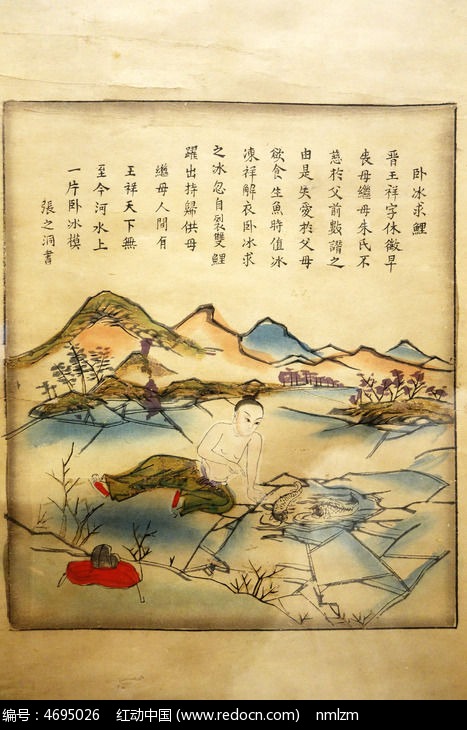 卧冰求鯉
晋王祥字休徵早
喪母繼母朱氏不
慈於父前數譖之
由是失愛於父母
欲食生魚時值冰
凍祥解衣卧冰求
之冰忽自裂雙鯉
躍出持歸供母
繼母人間有
王祥天下無
至今河水上
一片卧冰模
張之洞書
编号：4695026 红动中国 (www.redocn.com) nmlzm